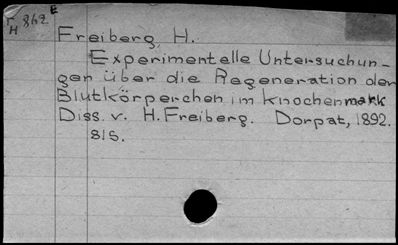 E
Γ 862
H
Freiberg, H.
Experimentelle Untersuchun-
gen über die Regeneration der
Blutkörperchen im Knochenmark
Diss. v. H. Freiberg. Dorpat, 1892.
81S.